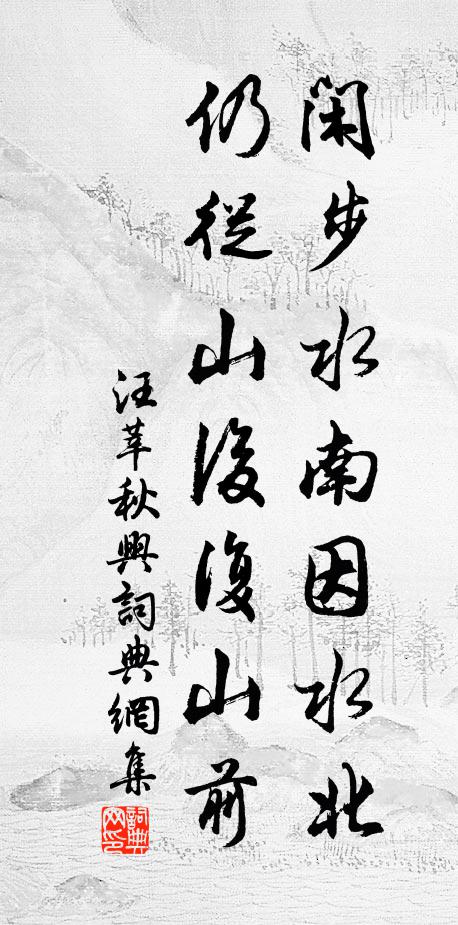 閑步水南因水北
仍從山後復山前
汪莘秋興詞典網集
詞典網印